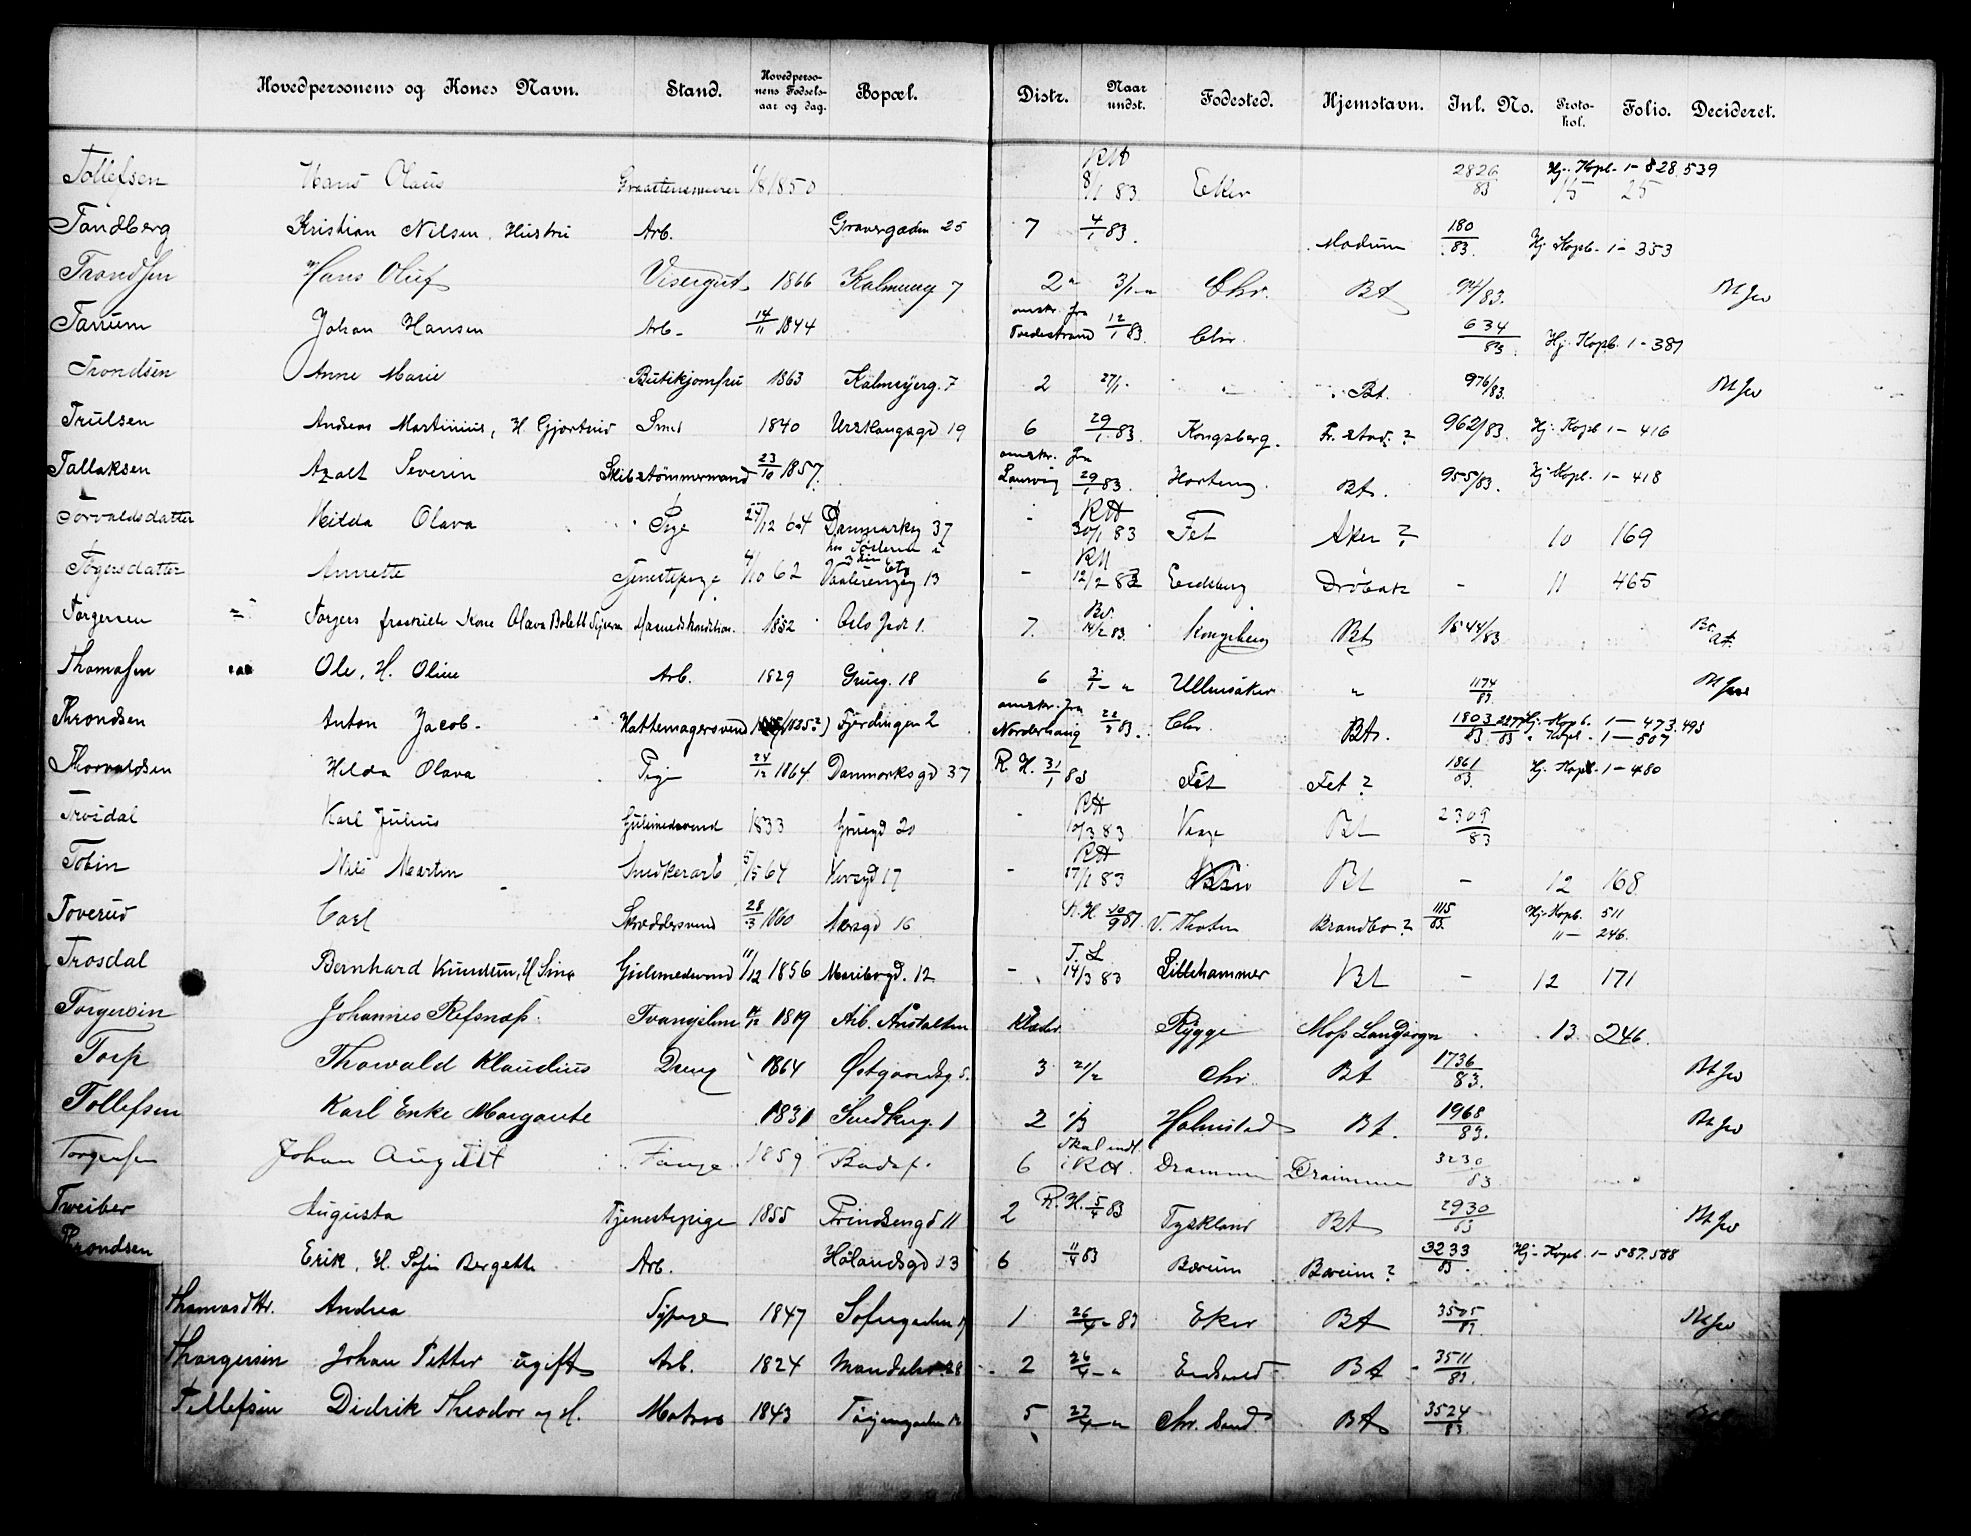 Hovedpersonens og Kones Navn. Stand. Hovedpersonens Fødsels-aar og dag. Bopæl. Distr. Naar undst. Fødested. Hjemstavn. Jnl. No. Protokol. Folio. Decideret.
Tollefsen Hans Olaus 1850 RH 8/1 83 Eker 2826/83 Hj. Kopb. 1- 528.539 15 25
Tandberg Kristian Nilsen, Hustru Arb. Gravergaden 25 7 4/1 83. Modum 180/83. Hj. Kopb. 1- 353
Trondsen Hans Oluf Visergut 1866 Kalmeyerg 7 2 3/1 Chr. Bt 94/83.
Tanum Johan Hansen Arb. 14/11 1844 omskr. fra Tvedestrand 12/1 83. Chr. 634/83. Hj. Kopb. 1- 381
Trondsen Anne Marie Butikjomfru 1863 Kalmeyerg. 7 2 27/1. " Bt. 976/83.
Trulsen Andreas Martinius, H. Gjertrud Smed 1840 Urskougsgd 19 6 29/1 83. Kongsberg. Fr. stad. ? 962/83. Hj. Kopb 1- 416
Tallaksen Axalt Severin Skibstømmermand 23/10 1857. omskr. fra Laurvig 29/1 83. Horten Bt. 955/83. Hj. Kopb. 1- 418
Torvaldsdatter Hilda Olava Pige 24/12 64 Danmarksg 37 - RH 30/1 83 Fet Aker ? 10 169
Annette Tjenestepige 4/10 62 hos Søsteren i Vaalerengg 13 - RH 12/2 83 Drøbak - 11 465
Torgersen Torgers fraskilte Kone Olava Bolett 1852 Oslo Gade 1. 7. 14/2 83. Kongsberg Bt 1544/83
Thomassen Ole, H. Oline Arb. 1829 Grueg. 18 6 3/1 - " Ullensaker " 1174/83
Throndsen Anton Jacob. Hattemagersvend (1835?) Fjerdingen 2 omskr. fra Norderhaug 22/2 83. Chr. Bt. 1803/83 Hj. Kopb. 1- 473.495
" Kopb. 1- 507
Thorvaldsen Hilda Olava Pige 24/12 1864 Danmarksgd 37 R. H. 31/1 83 Fet Fet ? 1861/83. Hj. Kopb. 1- 480
Trosdal Karl Julius Gulsmedsvend 1833 Gruegd 20 - RH 10/3 83 Vaage Bt 2309/83
Tobin Nils Martin Snedkerarb 5/5 64 17 - RH 17/1 83 Bt - 12 168
Toverud Carl Skræddersvend 28/3 1860 16 R. H. V. Thoten Brandbo ? 1115/83. Hj. Kopb. 511
" - 246.
Trosdal Bernhard Knudsen, H Sina Gulsmedsvend 11/12 1856 Maribogd. 12 - T. L 14/3 83 Lillehammer Bt - 12 171
Torgersen Johannes Refsnæss. Tvangslem 1819 Arb. Anstalten Rygge Moss Landsogn 13. 246.
Torp Thorvald Klaudius Dreng 1864 Østgaardsg 5. 3 21/2 Chr. Bt 1736/83.
Tollefsen Karl Enke Margarete 1831 Snedkerg. 1 2 1/3 Halmstad Bt. 1968/83.
Torgersen Johan August Fange 1859 Bodsf. 6 skal indl. i RH. Drammen Drammen 3230/83
Tweiber Augusta Tjenestepige 1855 Prindsengd 11 2 R. H. 5/4 83 Tyskland Bt 2930/83
Throndsen Erik, H. Sofie Bergette Arb. Hølandsgd 13 6 11/4 83 Bærum Bærum ? 3233/83. Hj. Kopb. 1- 587.588
Thomasdttr. Andrea Sypige 1847 Sofiegaden 1 26/4 - 83 Eker Bt 3505/83.
Thorgersen Johan Petter ugift Arb. 1824 28 2 26/4 - " Bt 3511/83.
Tellefsen Didrik Theodor og H. Matros 1843 Tøiengaden 5 27/4 - " Chr. Sand. Bt 3524/83.